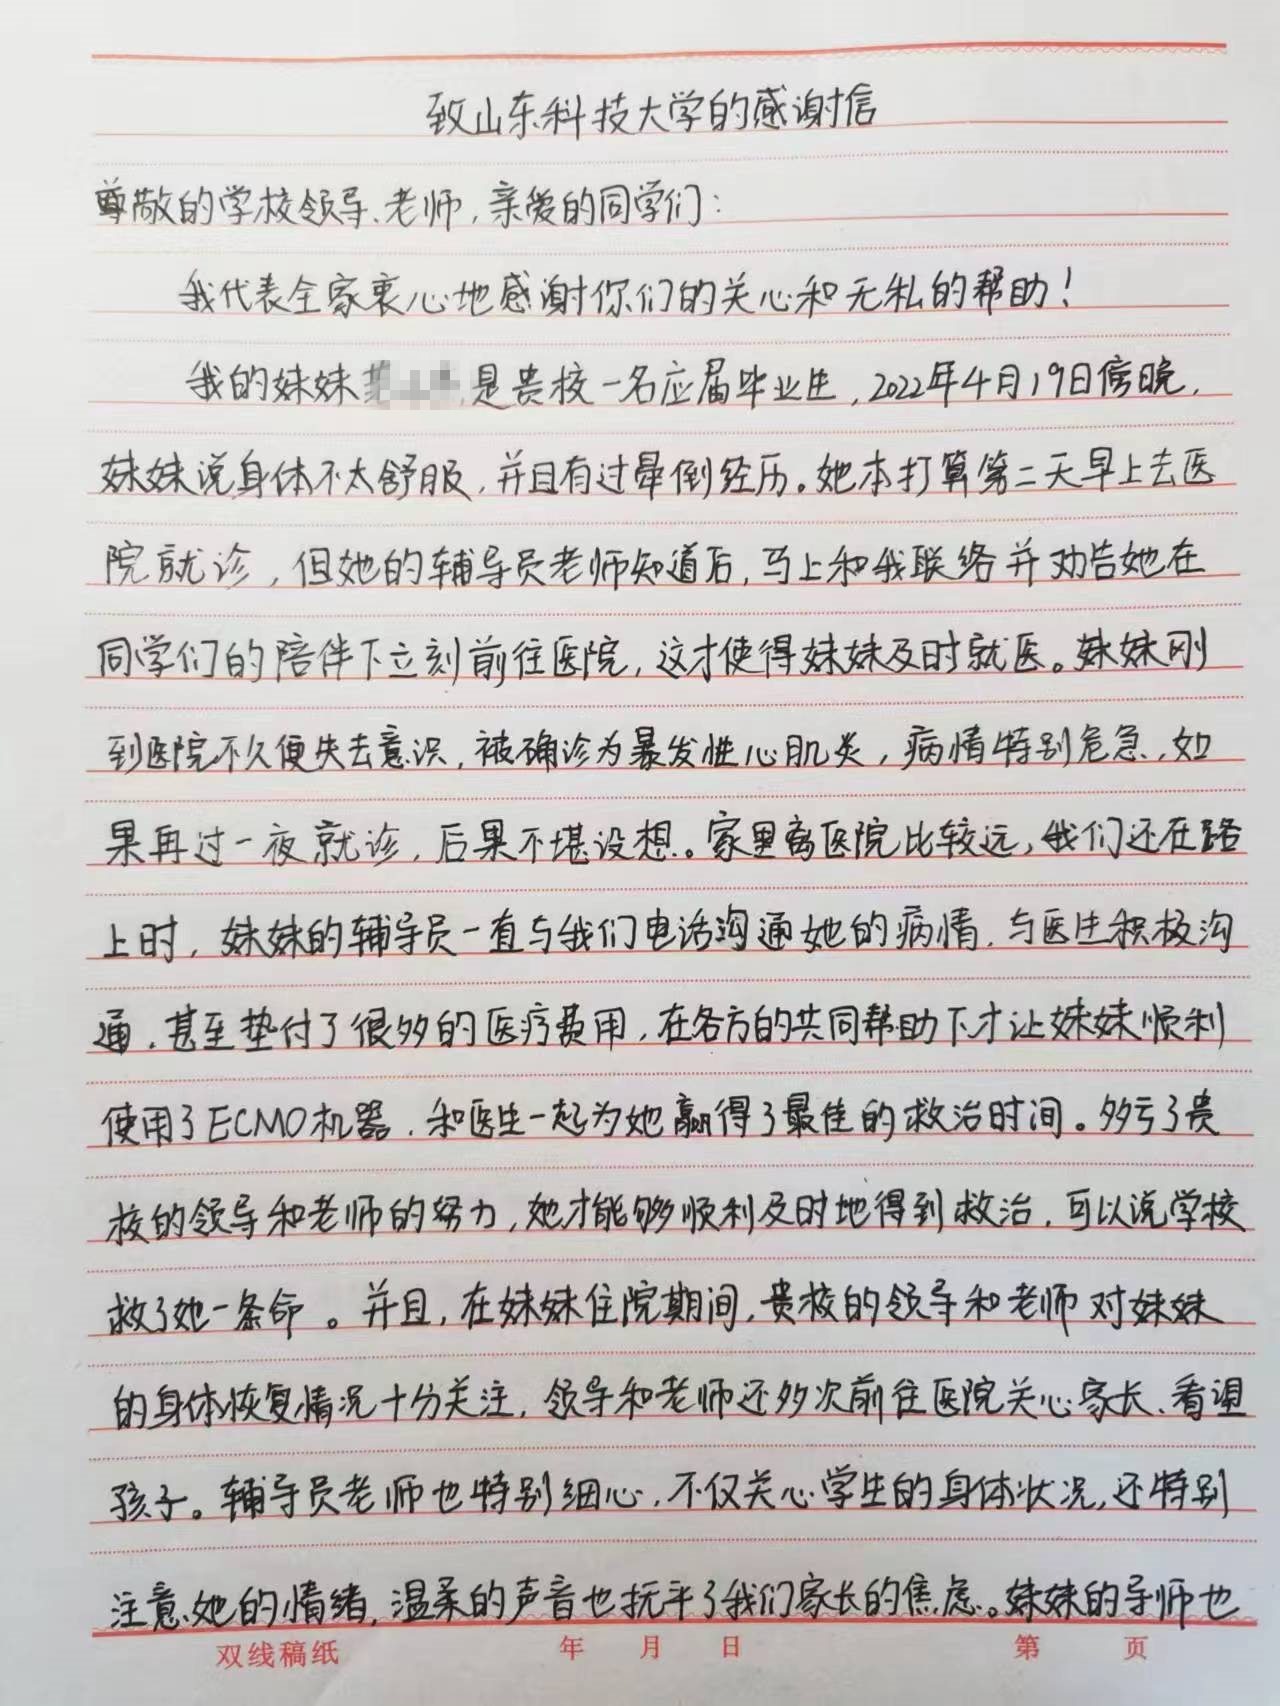 致山东科技大学的感谢信
尊敬的学校领导、老师,亲爱的同学们:
我代表全家衷心地感谢你们的关心和无私的帮助!
我的妹妹 是贵校一名应届毕业生,2022年4月19日傍晚,
妹妹说身体不太舒服,并且有过晕倒经历。她本打算第二天早上去医
院就诊,但她的辅导员老师知道后,马上和我联络并劝告她在
同学们的陪伴下立刻前往医院,这才使得妹妹及时就医。妹妹刚
到医院不久便失去意识,被确诊为暴发性心肌炎,病情特别危急,如
果再过一夜就诊,后果不堪设想。家里离医院比较远,我们还在路
上时,妹妹的辅导员一直与我们电话沟通她的病情,与医生积极沟
通,甚至垫付了很多的医疗费用,在各方的共同帮助下才让妹妹顺利
使用了ECMO机器,和医生一起为她赢得了最佳的救治时间。多亏了贵
校的领导和老师的努力,她才能够顺利及时地得到救治,可以说学校
救了她一条命。并且,在妹妹住院期间,贵校的领导和老师对妹妹
的身体恢复情况十分关注,领导和老师还多次前往医院关心家长、看望
孩子。辅导员老师也特别细心,不仅关心学生的身体状况,还特别
注意她的情绪,温柔的声音也抚平了我们家长的焦虑。妹妹的导师也
双线稿纸 年 月 日 第 页